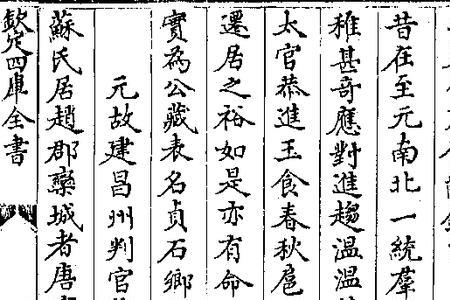 昔在至元南北一統羣
稚甚奇應對進趨溫溫
太官恭進玉食春秋扈
遷居之裕如是亦有命
實為公藏表名貞石鄉
元故建昌州判官
蘇氏居趙郡欒城者唐
欽定四庫全書